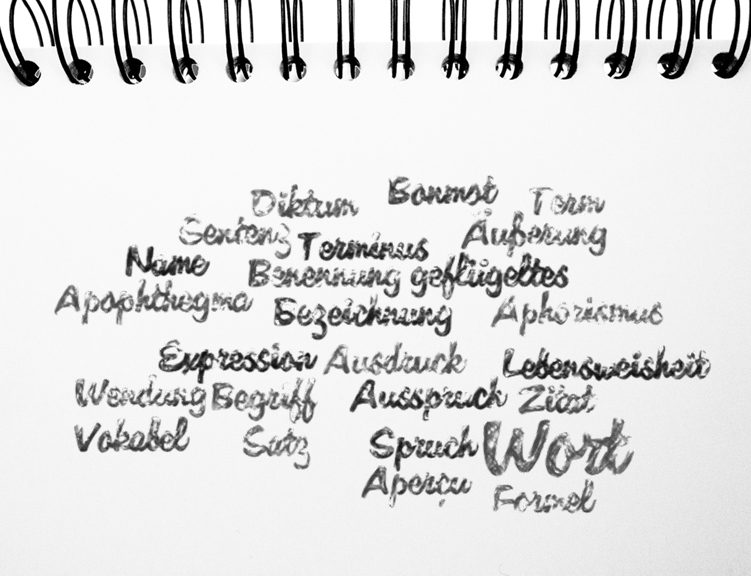 Diktum Bonmot Term
Sentenz Terminus Äußerung
Name Benennung geflügeltes
Apophthegma Bezeichnung Aphorismus
Expression Ausdruck Lebensweisheit
Wendung Begriff Ausspruch Zitat
Vokabel Satz Spruch Wort
Aperçu Formel